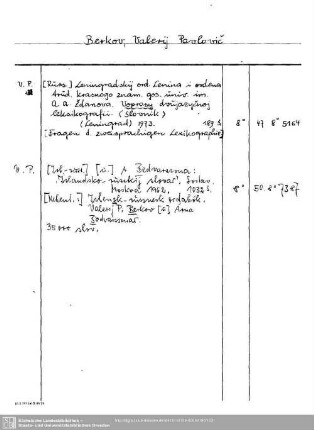 Berkov, Valerij Pavlovič
V. P. [Russ.] Leningradskij ord. Lenina i ordena
trud. krasnogo znam. gos. univ. im.
A. A. Ždanova. Voprosy dvujazyčnoj
leksikografii. (Slovnik)
(Leningrad) 1973. 189 S. 8° 47 8° 5164
[Fragen d. zweisprachigen Lexikographie]
V. P. [Isl.-russ.] [u.] A. Bödvarsson:
Islandsko-russkij slovar',
Moskva 1962, 1032 S. 8° 50. 8° 7387
[Nebent.:] Íslenzk-rússnesk orðabók.
Valerij P. Berkov [u.] Árni
Böðvarsson
35 000 slov.